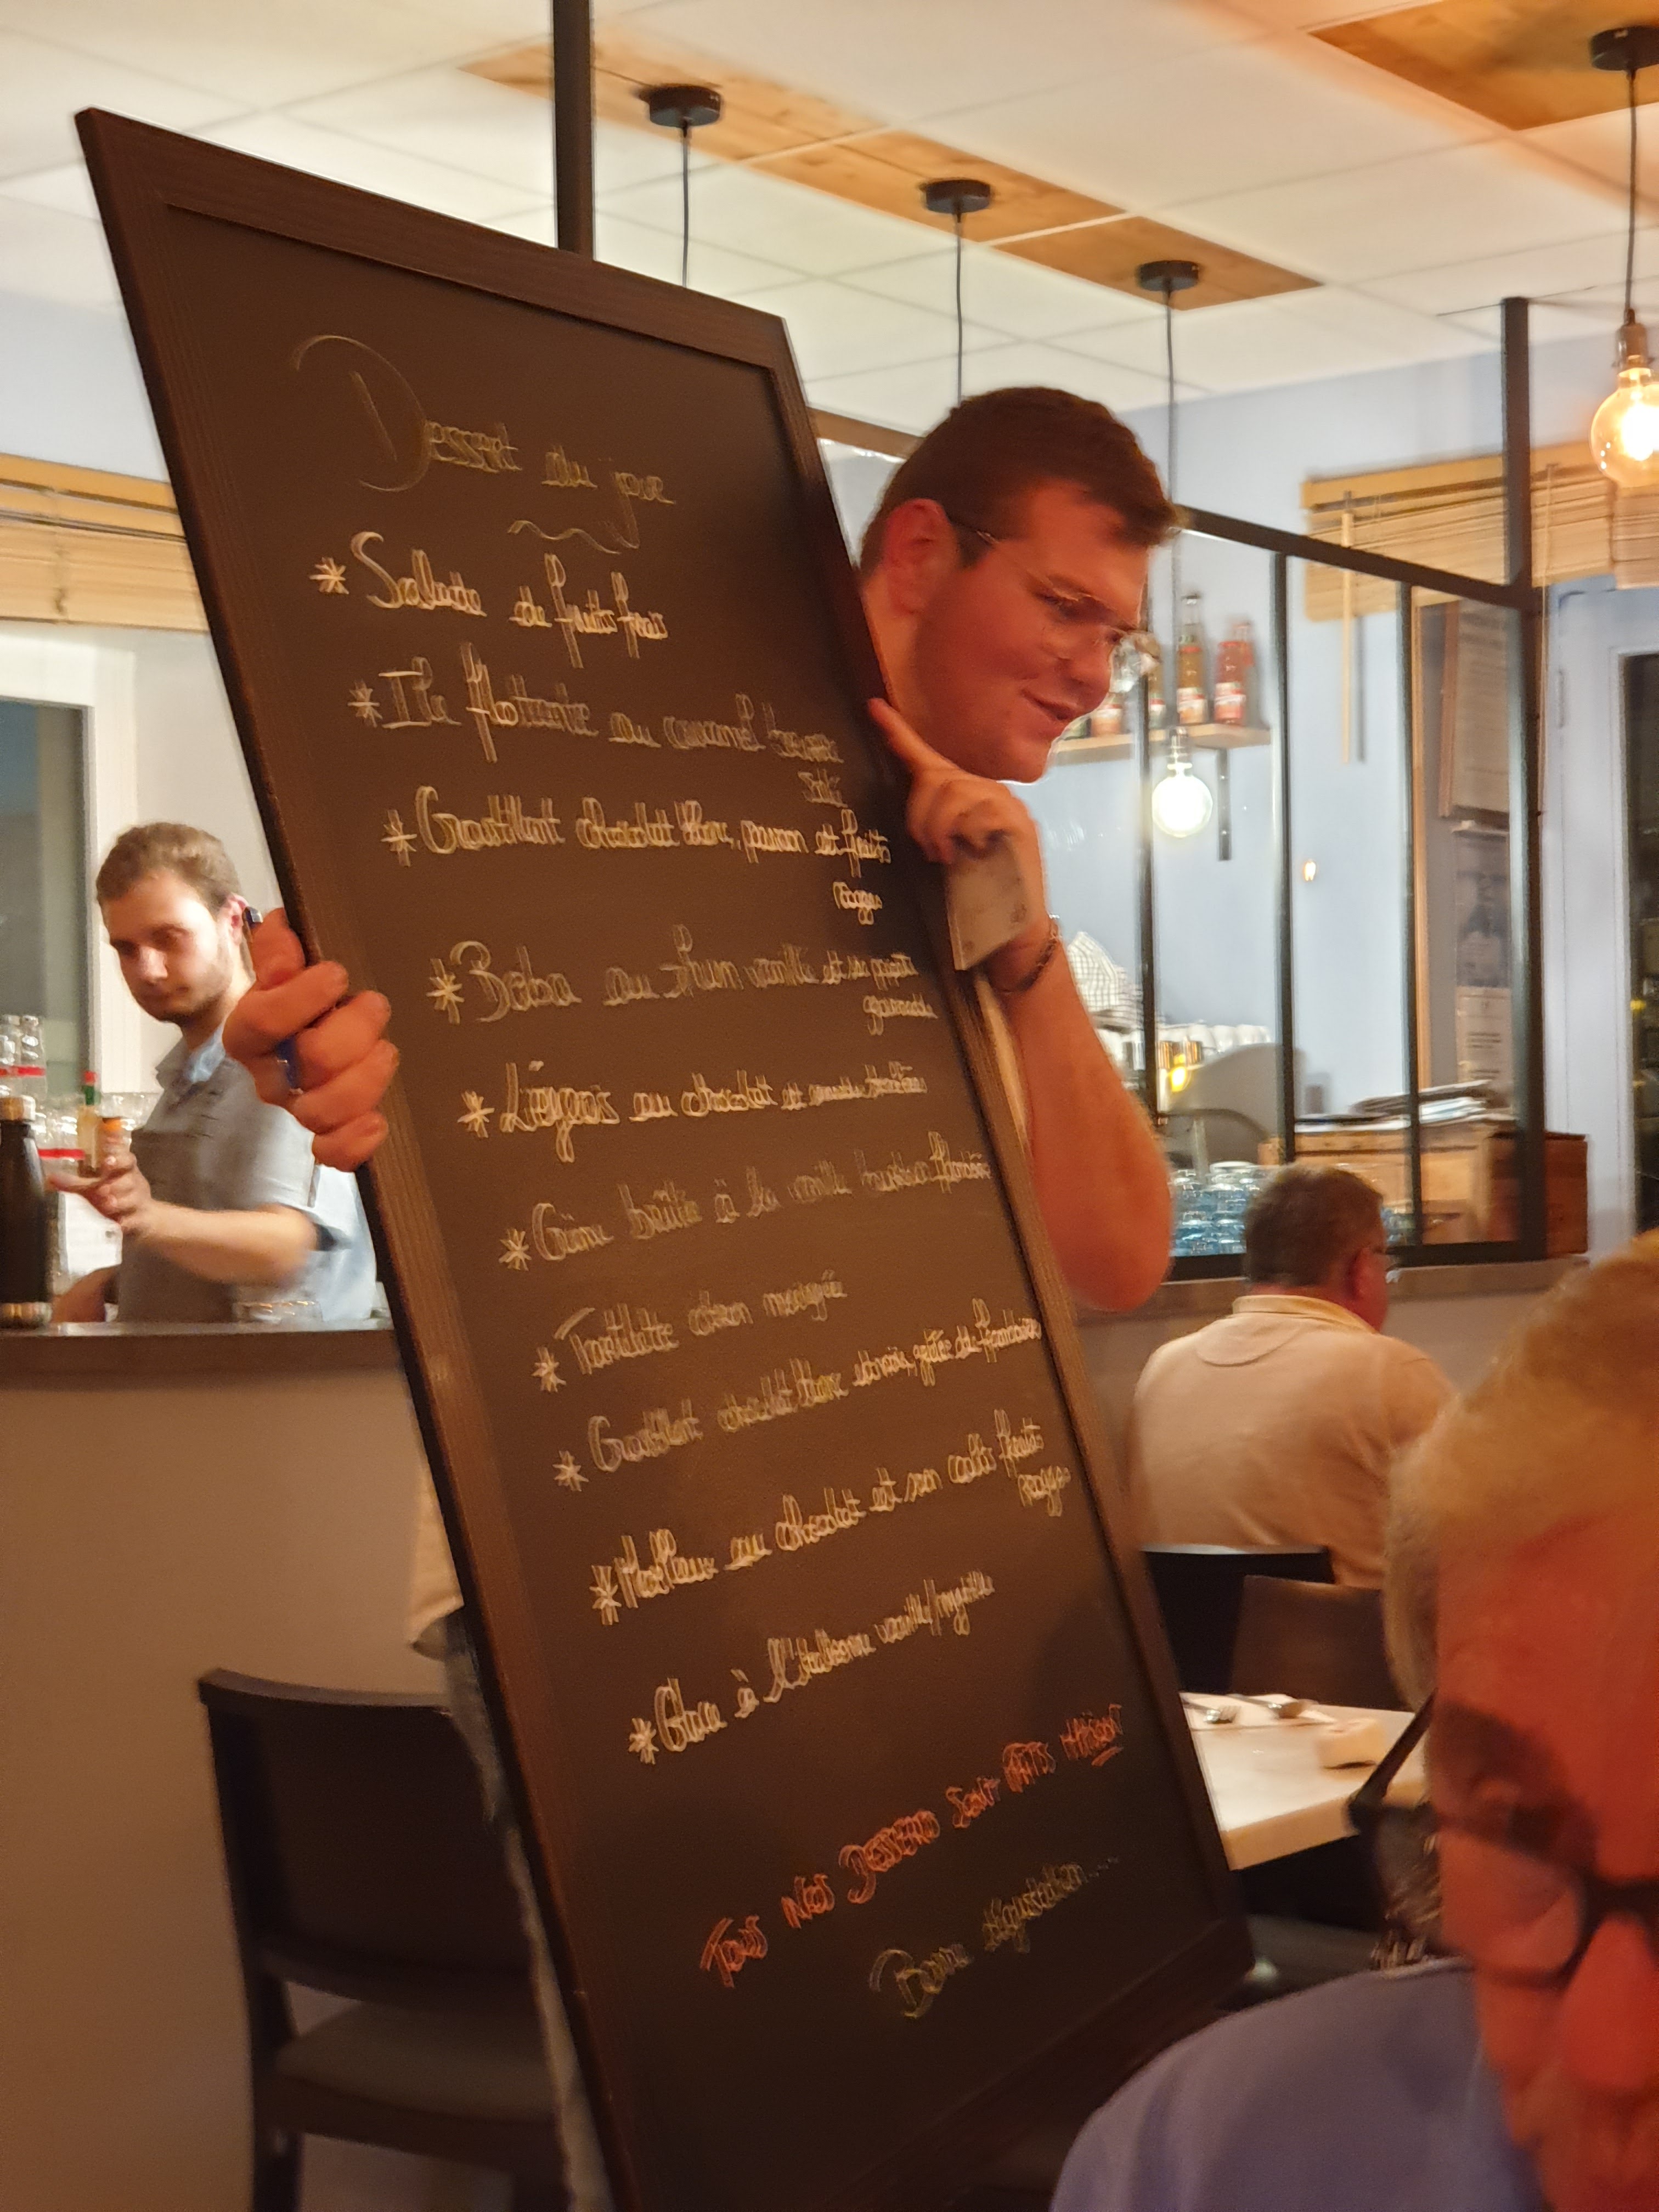 Dessert du jour
* Salade de fruits frais
* Ile flottante au caramel beurre
salé
* Croustillant chocolat blanc, passion et fruits
rouges
* Baba au rhum vanille et sa pipette
* Liégeois au chocolat et
* Crème brûlée à la vanille
* Tartelette citron meringée
* Croustillant chocolat blanc gelée de framboises
* Moelleux au chocolat et son coulis fruits
rouges
* Glace à l'italienne vanille/myrtille
TOUS NOS DESSERTS SONT FAITS MAISON
Bonne dégustation....